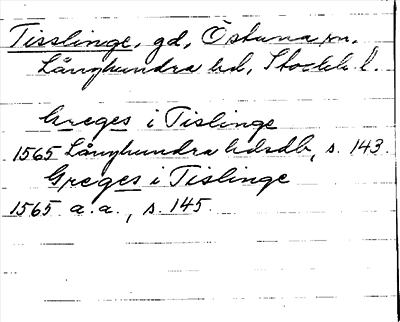 Tisslinge, gd, Östuna sn.
Långhundra hd, Stockh. l.
Greges i Tislinge
1565 Långhundra hdsdb, s. 143.
Greges i Tislinge
1565 a.a., s. 145.